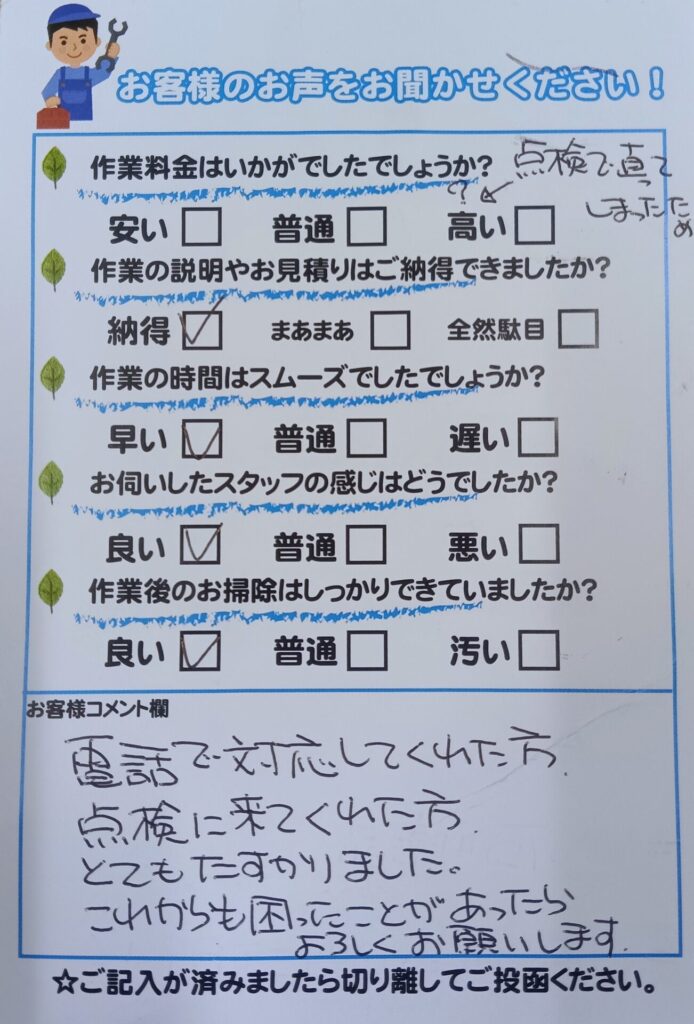 お客様のお声をお聞かせください！
作業料金はいかがでしたでしょうか？
点検で直って
しまったため
？
安い □ 普通 □ 高い □
作業の説明やお見積りはご納得できましたか？
納得 ☑ まあまあ □ 全然駄目 □
作業の時間はスムーズでしたでしょうか？
早い ☑ 普通 □ 遅い □
お伺いしたスタッフの感じはどうでしたか？
良い ☑ 普通 □ 悪い □
作業後のお掃除はしっかりできていましたか？
良い ☑ 普通 □ 汚い □
お客様コメント欄
電話で対応してくれた方.
点検に来てくれた方.
とてもたすかりました。
これからも困ったことがあったら
よろしくお願いします.
☆ご記入が済みましたら切り離してご投函ください。